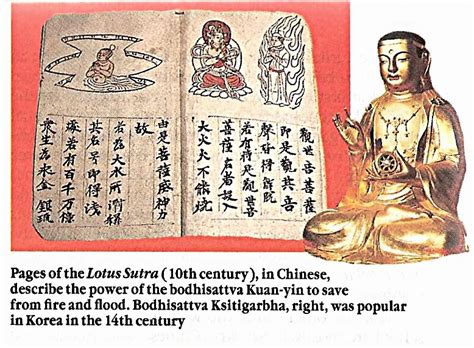 觀世音菩薩
大火火不能燒
由是菩薩威神力
故
若為大水所漂
其名号即得淺
處若有百千万億
衆生為求金銀琉
Pages of the Lotus Sutra (10th century), in Chinese,
describe the power of the bodhisattva Kuan-yin to save
from fire and flood. Bodhisattva Ksitigarbha, right, was popular
in Korea in the 14th century